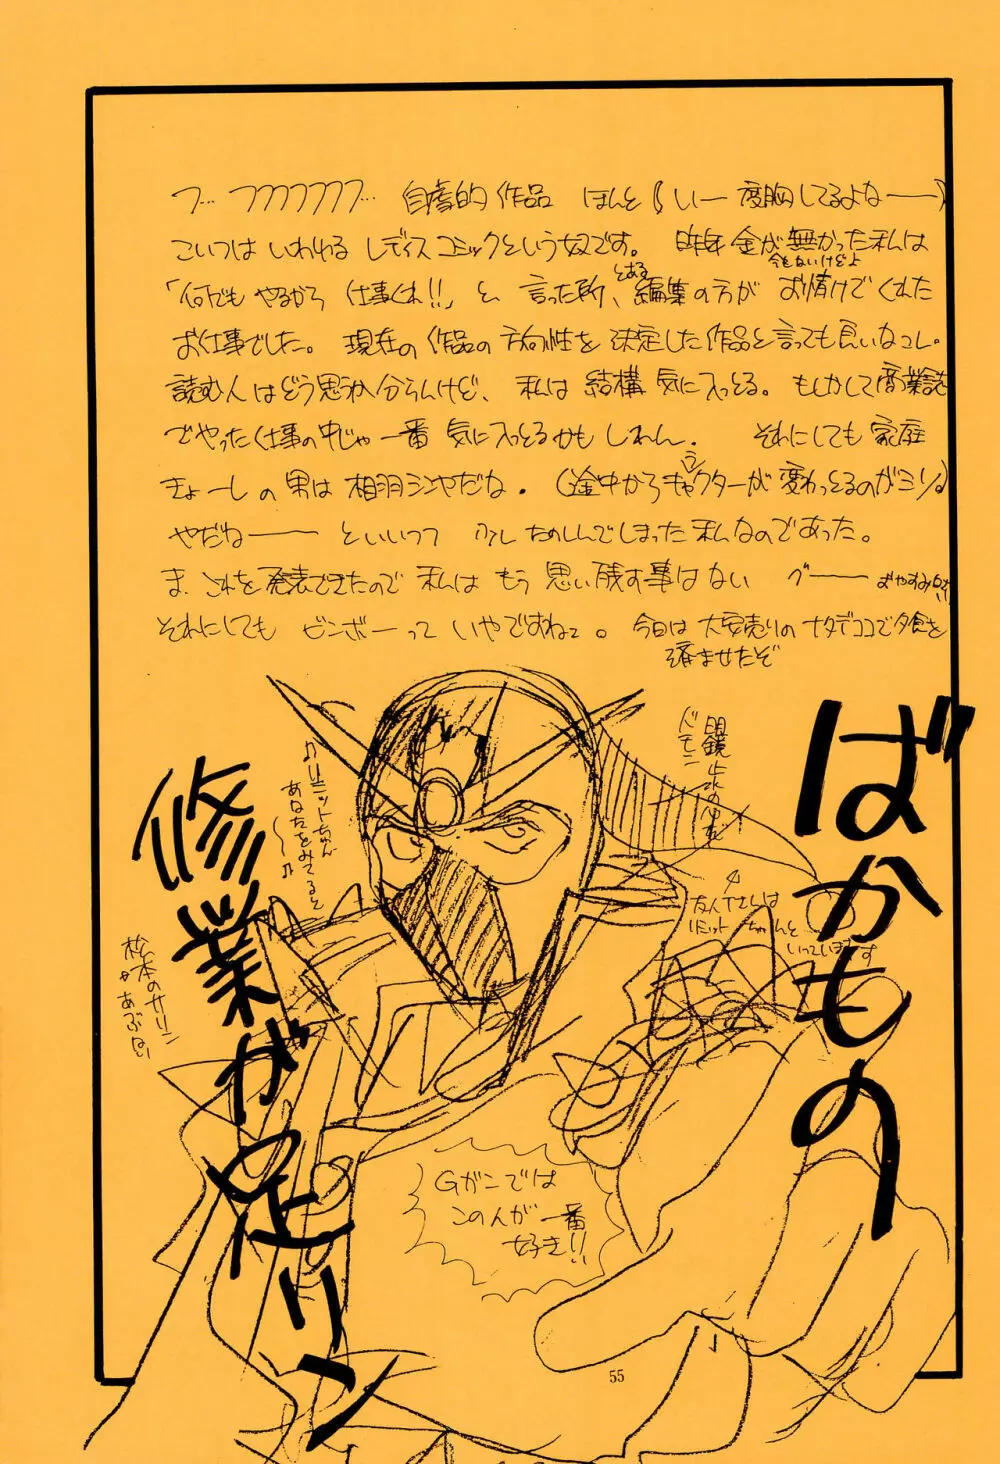 フ… フフフフフフ… 自虐的作品 ほんと いー度胸してるよなーー
こいつは いわゆる レディスコミックという奴です。 昨年 金が無かった私は
今もないけどよ
「何でも やるから 仕事くれ!!」と 言った所、とある編集の方が お情けでくれた
お仕事でした。 現在の 作品の 方向性を 決定した 作品と 言っても良いなコレ。
読む人はどう思うか分らんけど、 私は 結構 気に入っとる。 もしかして商業誌
でやった仕事の中じゃ一番 気に入っとるかも しれん。 それにしても 家庭
きょーしの 男は 相羽シンヤだな。 (途中からキャラクターが 変わっとるのがミソ。)
やだねーー といいつつ 少し たのしんでしまった 私なのであった。
ま、これを 発表できたので 私は もう 思い残す事はない グーー おやすみ
それにしても ビンボーって いやですねェ。 今日は 大安売りの ナタデココで夕食を
済ませたぞ
ばかもの
修業が足リン
明鏡止水の
ドモン
♪リミットちゃん
あなたをみてると
〜♪
友人
リミットちゃんと
いっています
松本のサリン
があぶない
Gガンでは
この人が一番
好き!!
55